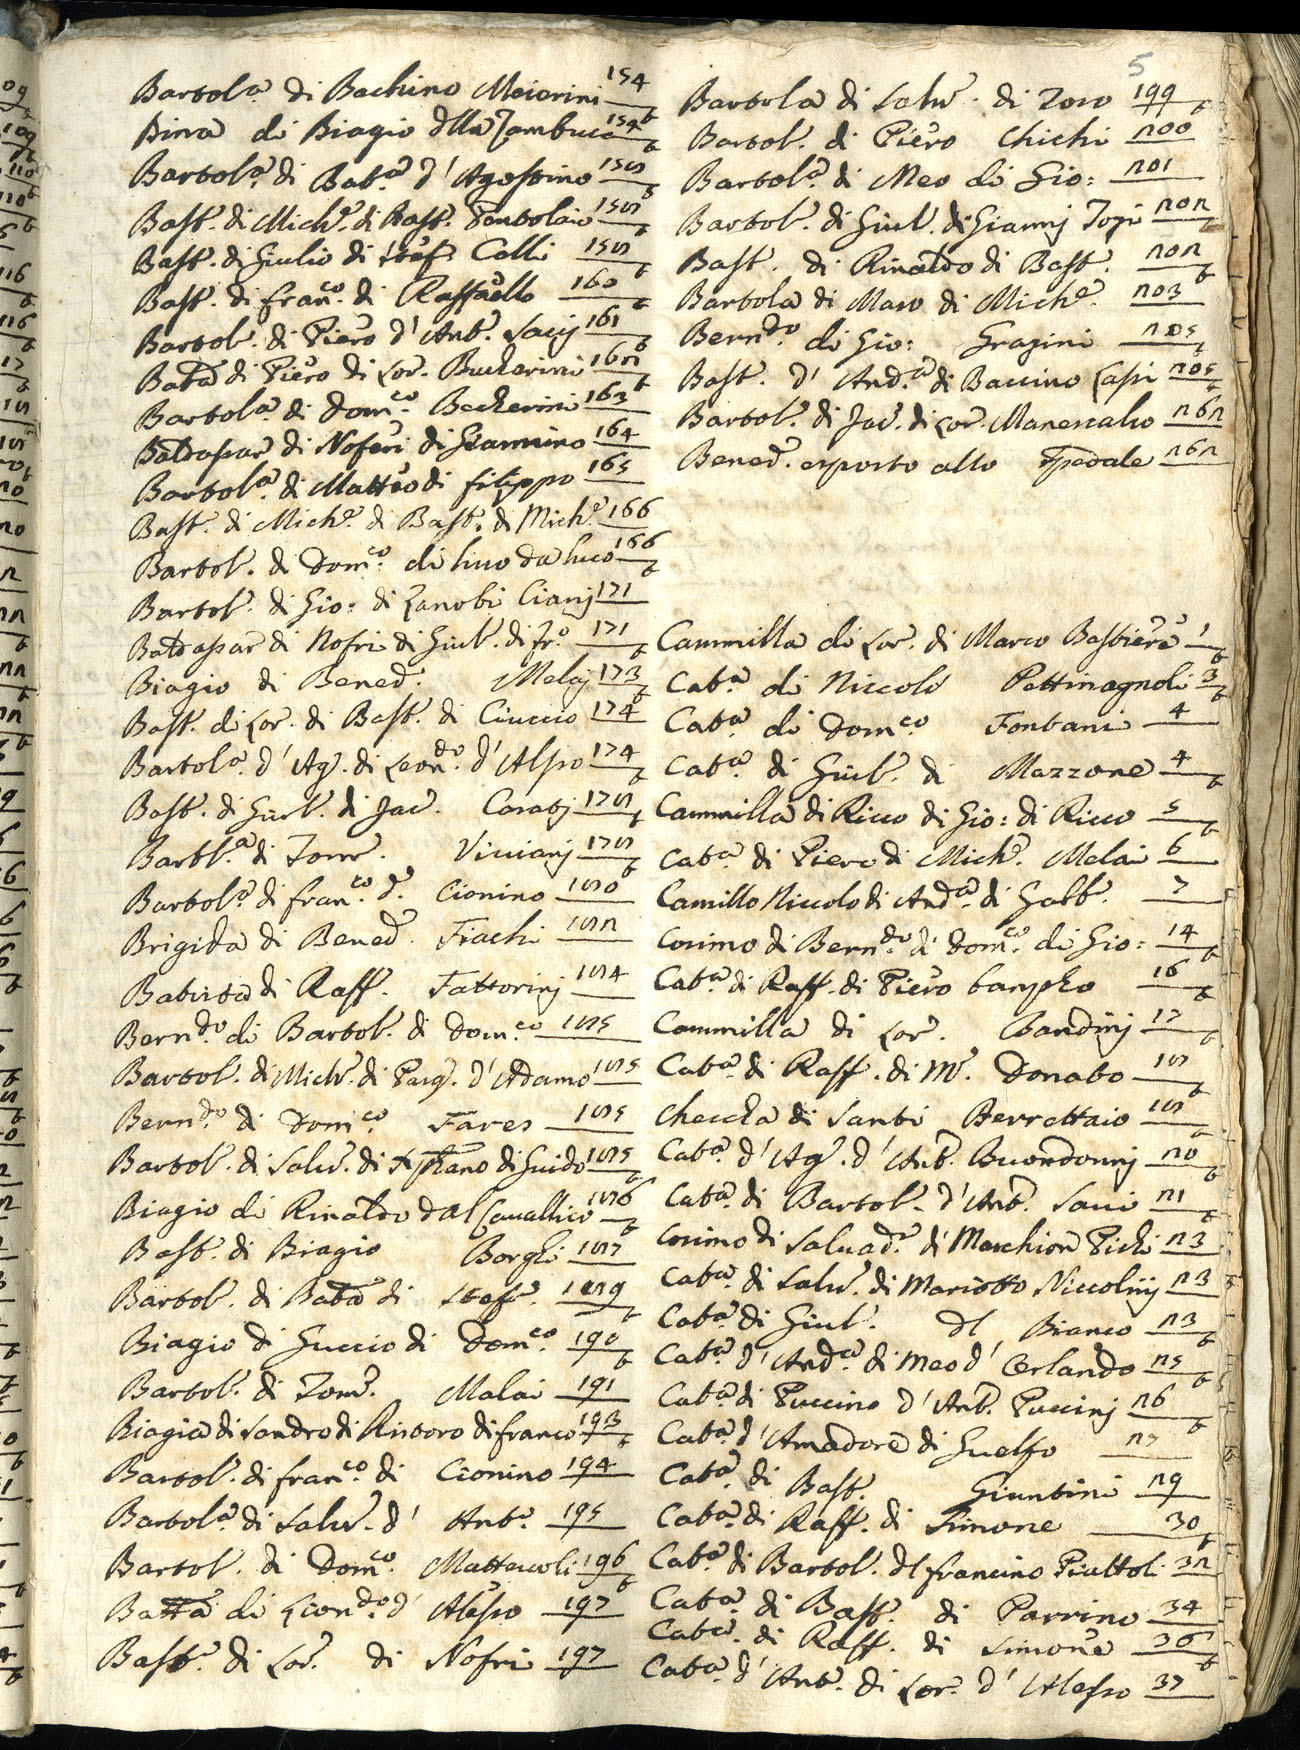 Bartol.ª di Bachino Meierini 154 t
Dina di Biagio dlla Zambuca 154 t
Bartol.ª di Bat.ª d' Agostino 158 t
Bast. di Mich.e di Bast. Pentolaio 158 t
Bast. di Giulio di Stef. Colli 158 t
Bast. di fran.co di Raffaello 160 t
Bartol. di Piero d' Ant.o Sacij 161 t
Bat.a di Piero di Lor. Bucherini 162 t
Bartol.ª di Dom.co Becherini 163 t
Baldassar di Noferi di Giannino 164
Bartol.ª di Matteo di filippo 165
Bast. di Mich.e di Bast. di Mich.e 166
Bartol. di Dom.co di lino da luco 166 t
Bartol. di Gio: di Zanobi Cianj 171
Baldassar di Nofri di Giul. di fr.o 171 t
Biagio di Bened. Melaj 173 t
Bast. di Lor. di Bast. di Ciuccio 174
Bartol.ª d' Ag. di Leon.do d' Alsso 174 t
Bast. di Giul. di Jac. Coratj 178 t
Bartl.ª di Tom. Viccianj 178 t
Bartol.ª di fran.co d. Cionino 180
Brigida di Bened. Fiachi 182
Batista di Raff. Fattorinj 184
Bern.do di Bartol. di Dom.co 185
Bartol. di Mich. di Pasq. d' Adamo 185 t
Bern.do di Dom.co Fares 185
Bartol. di Salv. di Stefano di Guido 185 t
Biagio di Rinaldo dal Cavallico 186 t
Bast. di Biagio Borghi 187
Bartol. di Bata di Stef. 189 t
Biagio di Guccio di Dom.co 190 t
Bartol. di Tom. Malai 191
Biagia di Sandro di Ristoro di franco 193 t
Bartol. di fran.co di Cionino 194
Bartol.ª di Salv. d' Ant.o 195
Bartol. di Dom.co Matteucoli 196 t
Batta di Lion.do d' Alesso 197
Bast.o di Lor. di Nofri 197
5
Bartola di Salv. di Toro 199 t
Bartol. di Piero Chichi 200
Bartol.ª di Meo di Gio: 201
Bartol. di Giul. di Giannj Topi 202 t
Bast. di Rinaldo di Bast. 202 t
Bartola di Maso di Mich.e 203
Bern.do di Gio: Gragini 205 t
Bast. d' And.a di Baccino Lapi 205 t
Bartol. di Jac. di Lor. Manescalco 262
Bened. esposto allo spedale 262
Cammilla di Lor. di Marco Barbiere 1 t
Cat.ª di Niccolò Pettinagnoli 3 t
Cat.ª di Dom.co Fontani 4
Cat.ª di Giul. di Mazzone 4 t
Cammilla di Ricco di Gio: di Ricco 5 t
Cat.ª di Piero di Mich. Melai 6
Camillo Niccolo di And.a di Galb. 7
Cosimo di Bern.do di Dom.co di Gio: 14 t
Cat.ª di Raff. di Piero banpho 16 t
Cammilla di Lor. Bandinj 17 t
Cat.ª di Raff. di M. Donato 18 t
Checcha di Santi Berrettaio 18 t
Cat.ª d' Ag. d' Ant. Buondonnj 20 t
Cat.ª di Bartol. d' Ant. Savi 21 t
Cosimo di Salvad.e di Marchion Pichi 23
Cat.ª di Salv. di Mariotto Niccolinj 23
Cat.ª di Giul. dl Bianco 23 t
Cat.ª d' And.a di Meo d' Orlando 25 t
Cat.ª di Puccino d' Ant. Puccinj 26 t
Cat.ª d' Amadore di Guelfo 27
Cat.ª di Bast. Giuntini 29
Cat.ª di Raff. di Simone 30 t
Cat.ª di Bartol. dl francino Piattoli 32
Cat.ª di Bast. di Parrino 34
Cat.ª di Raff. di Simone 36 t
Cat.ª d' Ant. di Lor. d' Alesso 37